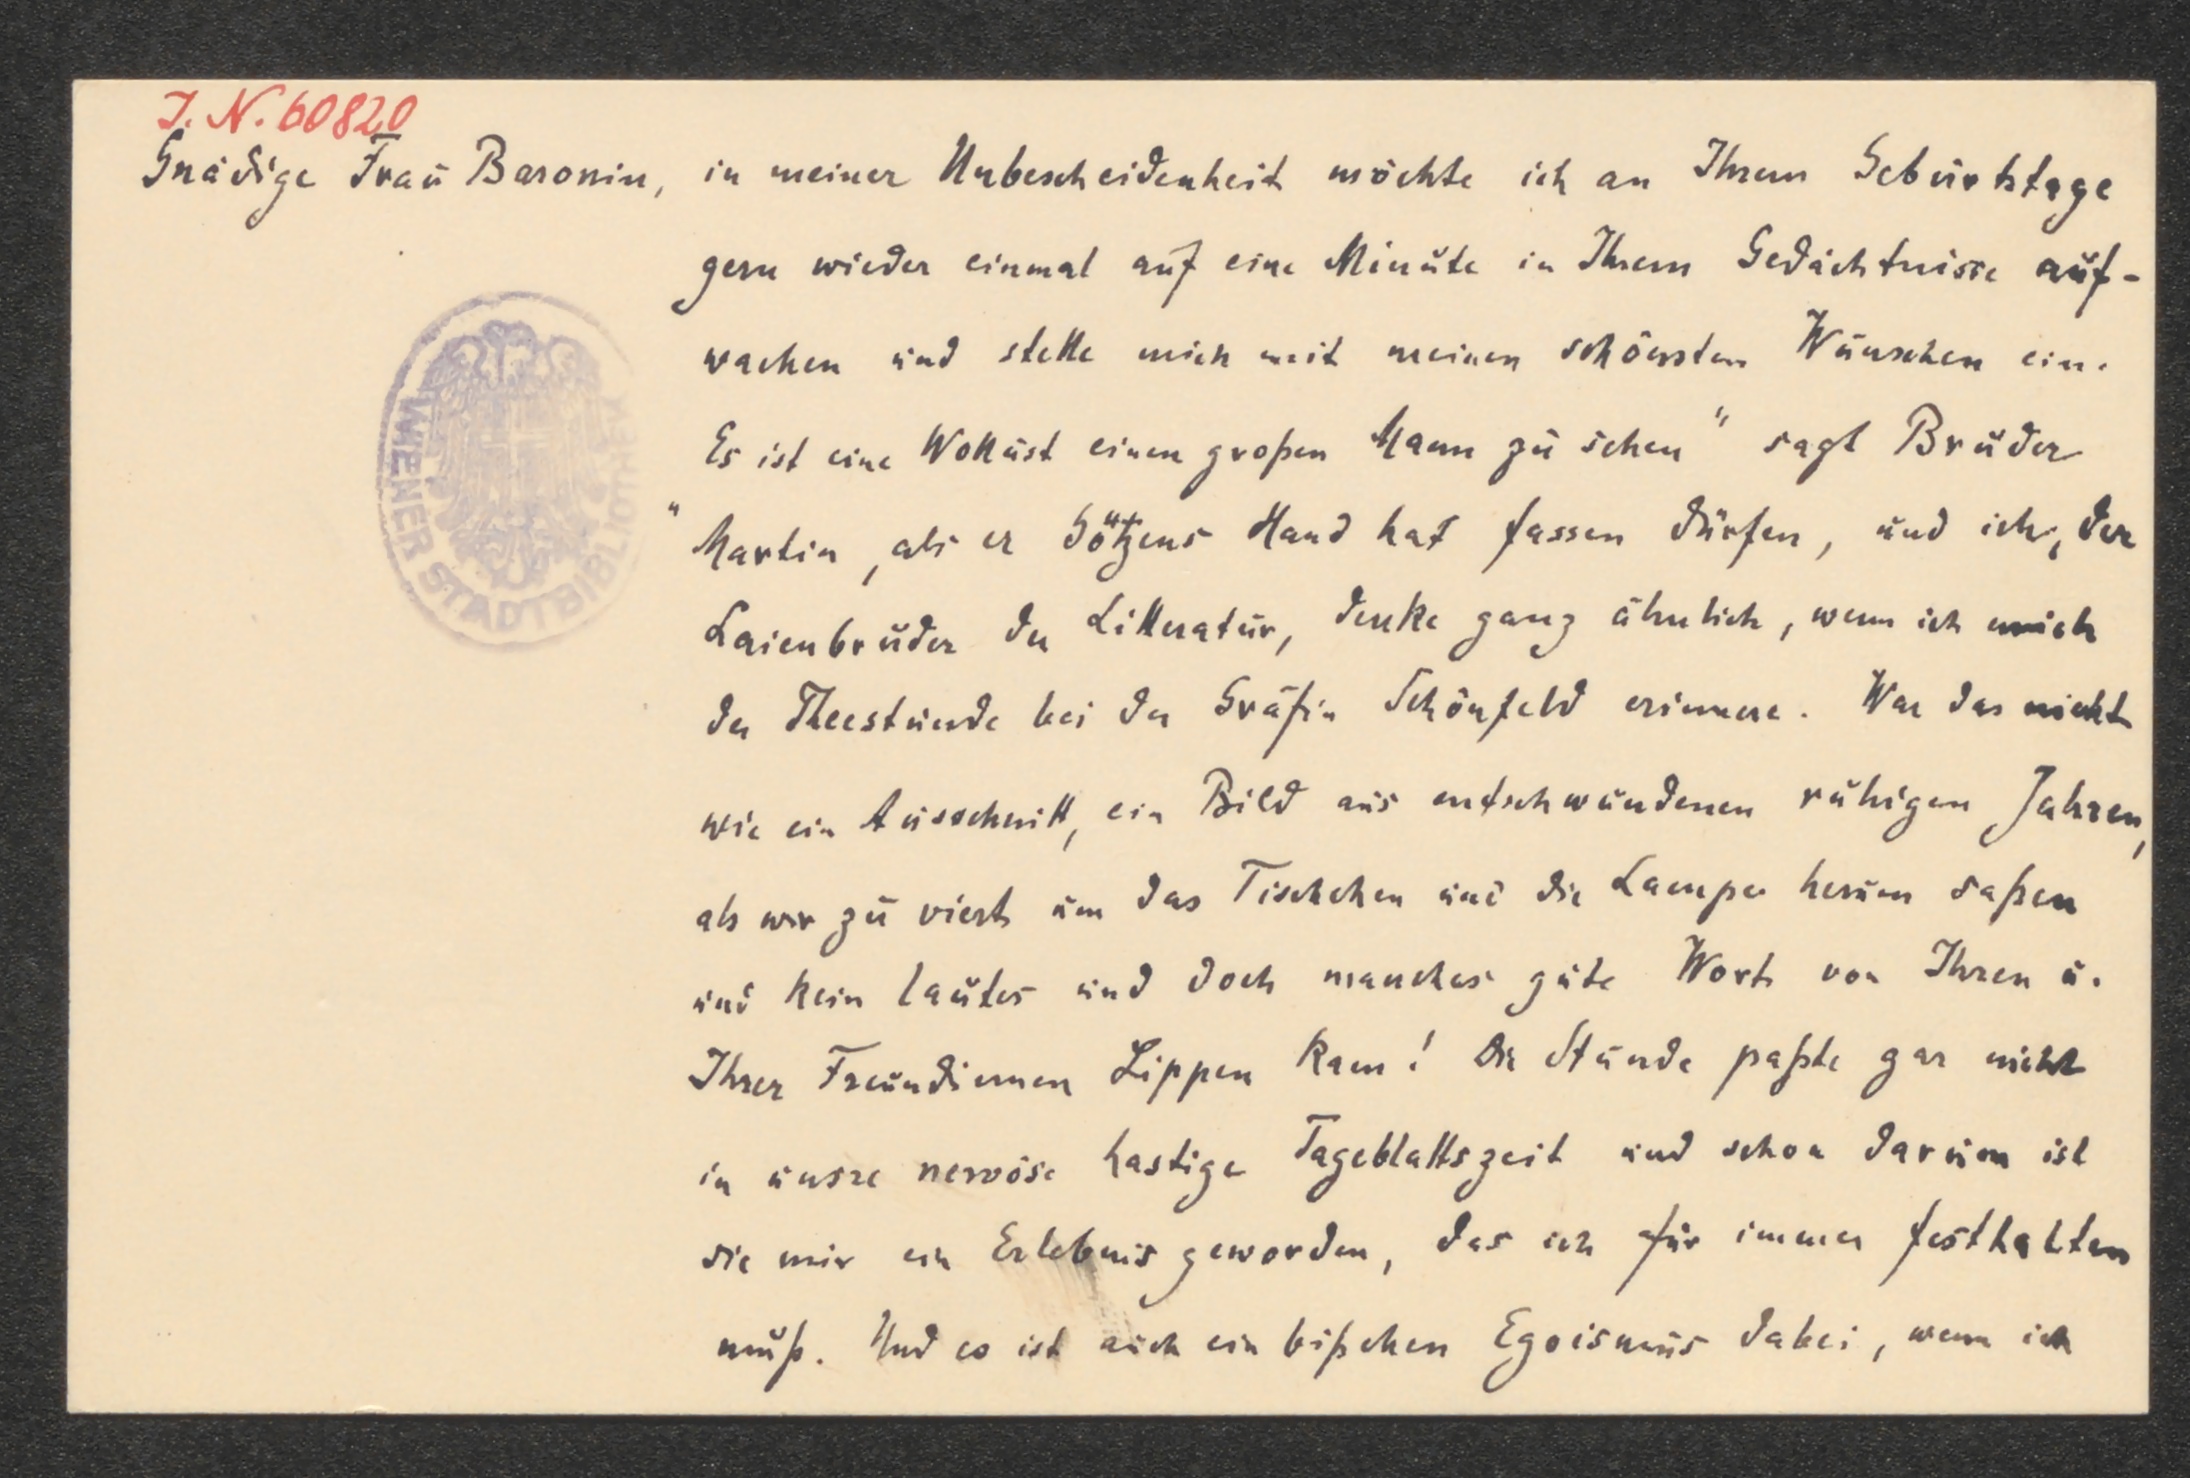 I. N. 60820
Gnädige Frau Baronin, in meiner Unbescheidenheit möchte ich an Ihrem Geburtstage
gern wieder einmal auf eine Minute in Ihrem Gedächtnisse auf-
wachen und stelle mich mit meinen schönsten Wünschen ein.
Es ist eine Wollust einen großen Mann zu sehen" sagt Bruder
"Martin, als er Götzens Hand hat fassen dürfen, und ich, der
Laienbruder der Litteratur, denke ganz ähnlich, wenn ich mich
der Theestunde bei der Gräfin Schönfeld erinnere. War das nicht
wie ein Ausschnitt, ein Bild aus entschwundenen ruhigen Jahren,
als wir zu viert um das Tischchen und die Lampe herum saßen
und kein lautes und doch manches gute Wort von Ihren u.
Ihrer Freundinnen Lippen kam! Die Stunde paßte gar nicht
in unsre nervöse hastige Tageblattszeit und schon darum ist
sie mir ein Erlebnis geworden, das ich für immer festhalten
muß. Und es ist auch ein bißchen Egoismus dabei, wenn ich
WIENER STADTBIBLIOTHEK